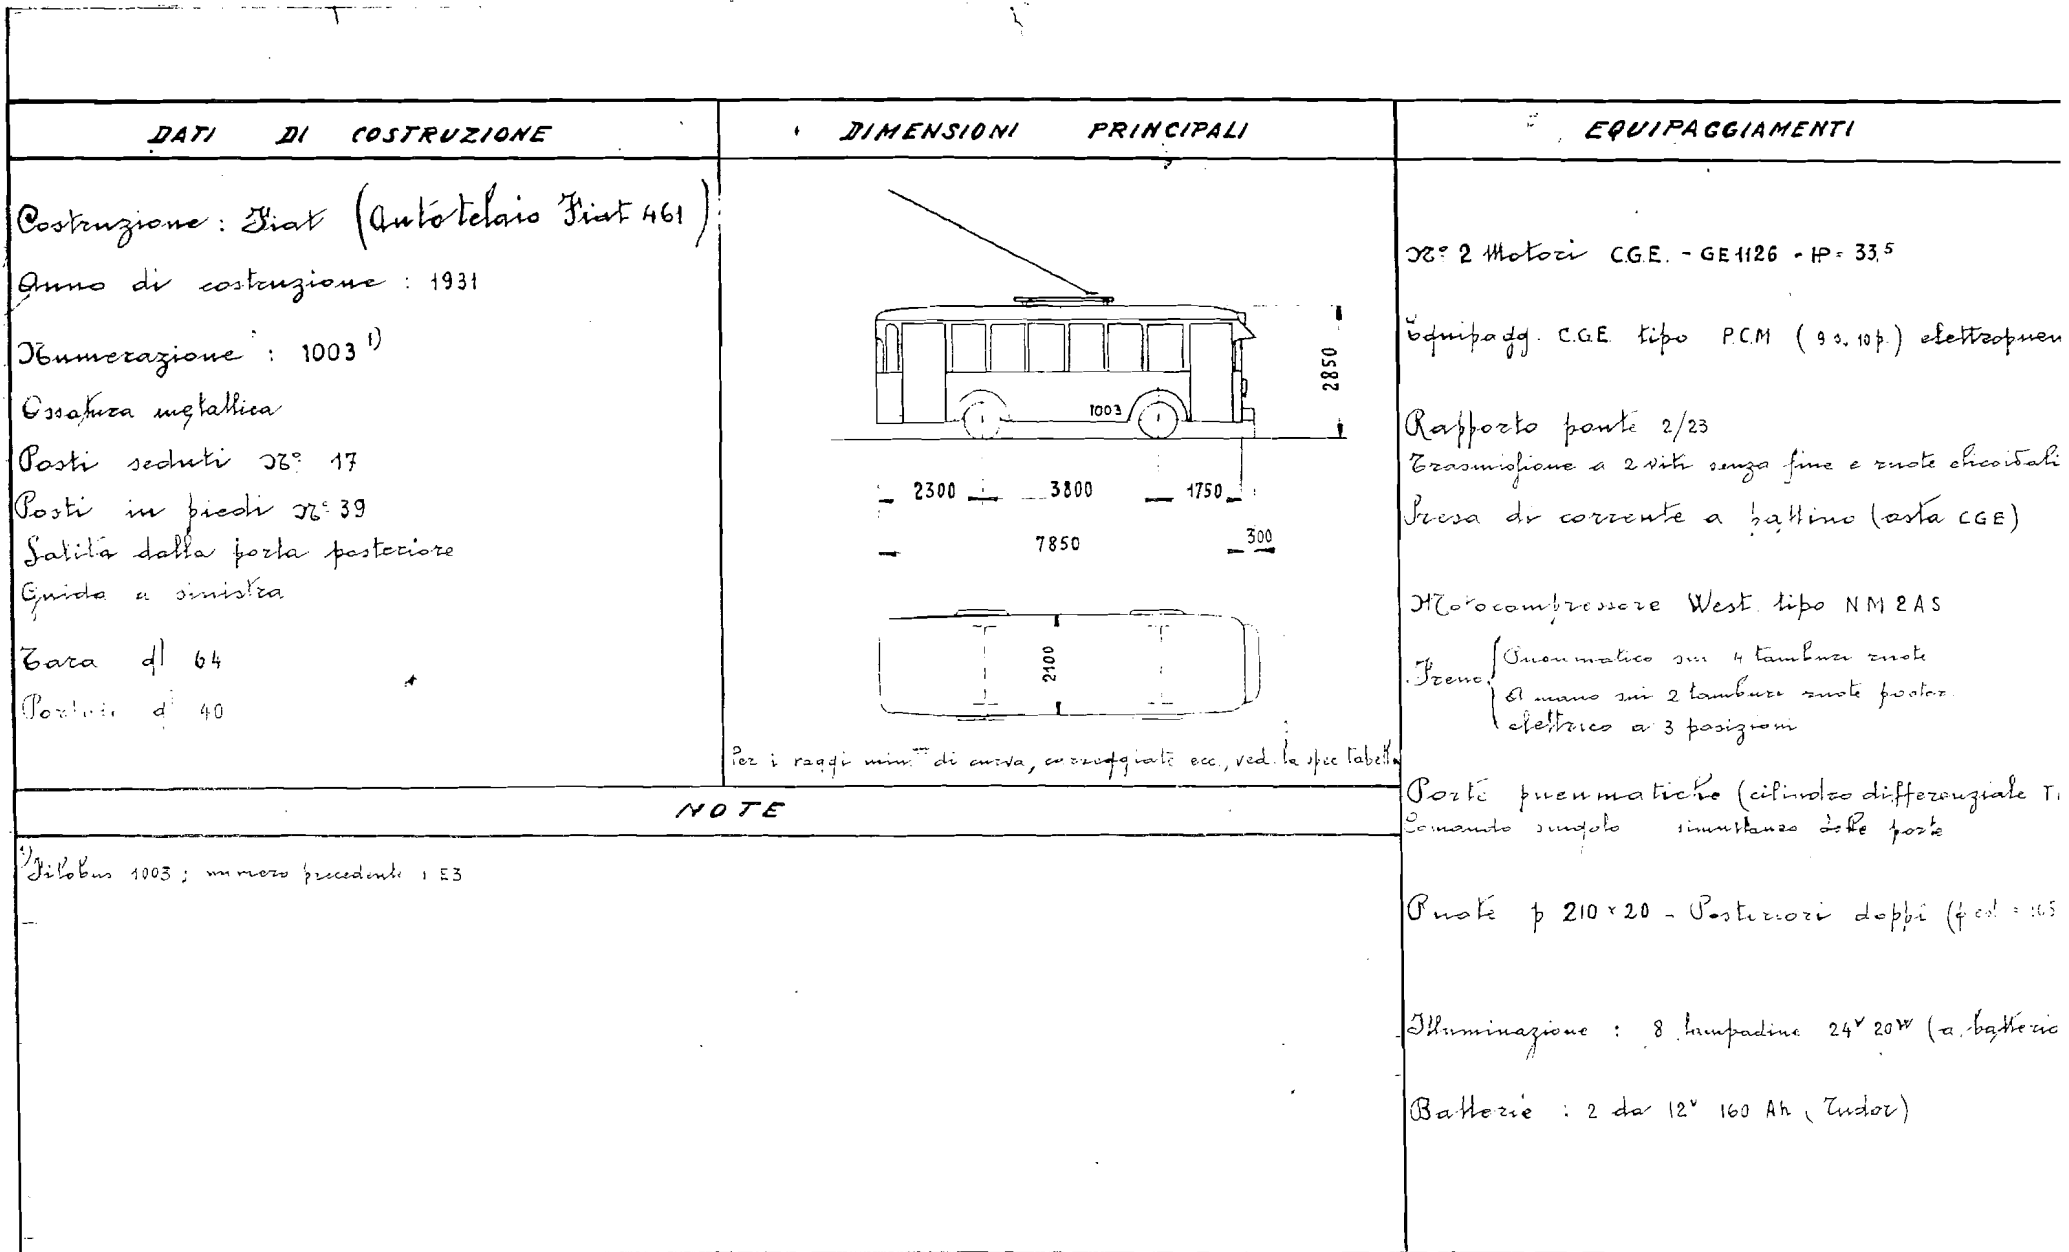 DATI DI COSTRUZIONE
Costruzione : Fiat (Autotelaio Fiat 461)
Anno di costruzione : 1931
Numerazione : 1003 1)
Ossatura metallica
Posti seduti N° 17
Posti in piedi N° 39
Salita dalla porta posteriore
Guida a sinistra
Tara ql 64
Portata ql 40
DIMENSIONI PRINCIPALI
1003
2850
2300 3800 1750
7850 300
2100
Per i raggi min. di curva, carreggiate ecc., ved. la spec tabella
EQUIPAGGIAMENTI
N° 2 Motori C.G.E. - GE 1126 - HP = 33,5
Equipagg. C.G.E. tipo P.C.M (9 s. 10 p.) elettropneu
Rapporto ponte 2/23
Trasmissione a 2 viti senza fine e ruote elicoidali
Presa di corrente a (asta CGE)
Motocompressore West. tipo NM 2 AS
Freno
Pneumatico sui 4 tamburi ruote
A mano sui 2 tamburi ruote poster.
elettrico a 3 posizioni
Porte pneumatiche (cilindro differenziale
Comando singolo simultaneo delle porte
Ruote p 210 x 20 - Posteriori doppi
Illuminazione : 8 lampadine 24V 20W (a batteria
Batterie : 2 da 12V 160 Ah (Tudor)
NOTE
1) Filobus 1003 ; numero precedente : E3